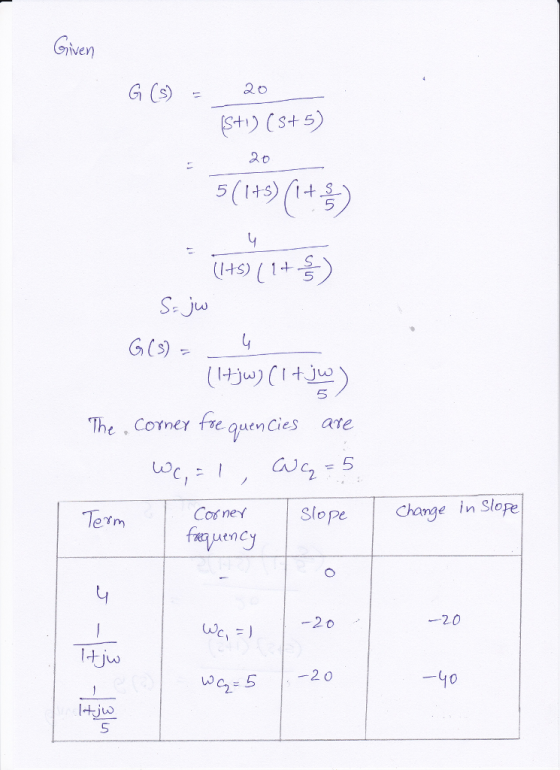 Given
G(s) = 20 / (s+1)(s+5)
= 20 / 5(1+s)(1+s/5)
= 4 / (1+s)(1+s/5)
S=jw
G(s) = 4 / (1+jw)(1+jw/5)
The corner frequencies are
wc₁ = 1 , wc₂ = 5
Term Corner frequency Slope Change in slope
4 - 0
1 / 1+jw wc₁ = 1 -20 -20
1 / 1+jw/5 wc₂ = 5 -20 -40